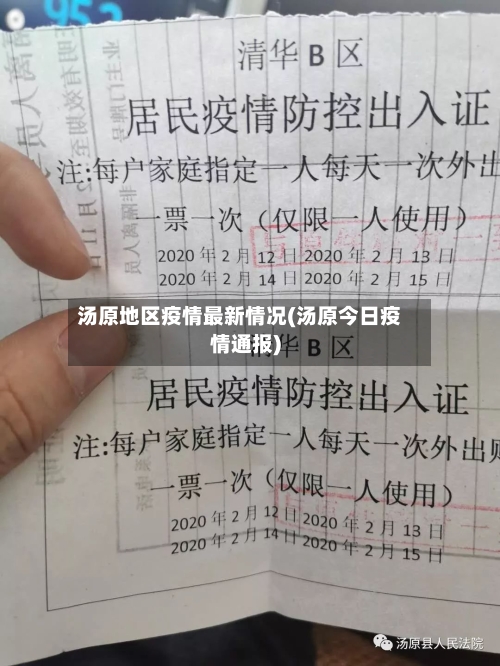 清华 B 区
居民疫情防控出入证
注:每户家庭指定一人每天一次外出
一票一次（仅限一人使用）
2020 年 2 月 12 日 2020 年 2 月 13 日
2020 年 2 月 14 日 2020 年 2 月 15 日
汤原地区疫情最新情况(汤原今日疫
情通报)
华 B 区
居民疫情防控出入证
注:每户家庭指定一人每天一次外出购
一票一次（仅限一人使用）
2020 年 2 月 12 日 2020 年 2 月 13 日
2020 年 2 月 14 日 2020 年 2 月 15 日
汤原县人民法院